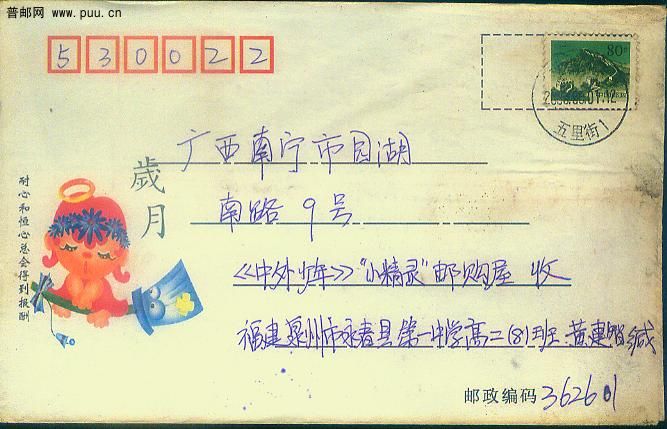 普邮网 www.puu.cn
530022
80分
五里街1
广西南宁市园湖
南路9号
《中外少年》"小精灵"邮购屋 收
福建泉州市永春县第一中学高二(8)班 黄建 缄
邮政编码 362601
歲月
耐心和恒心总会得到报酬